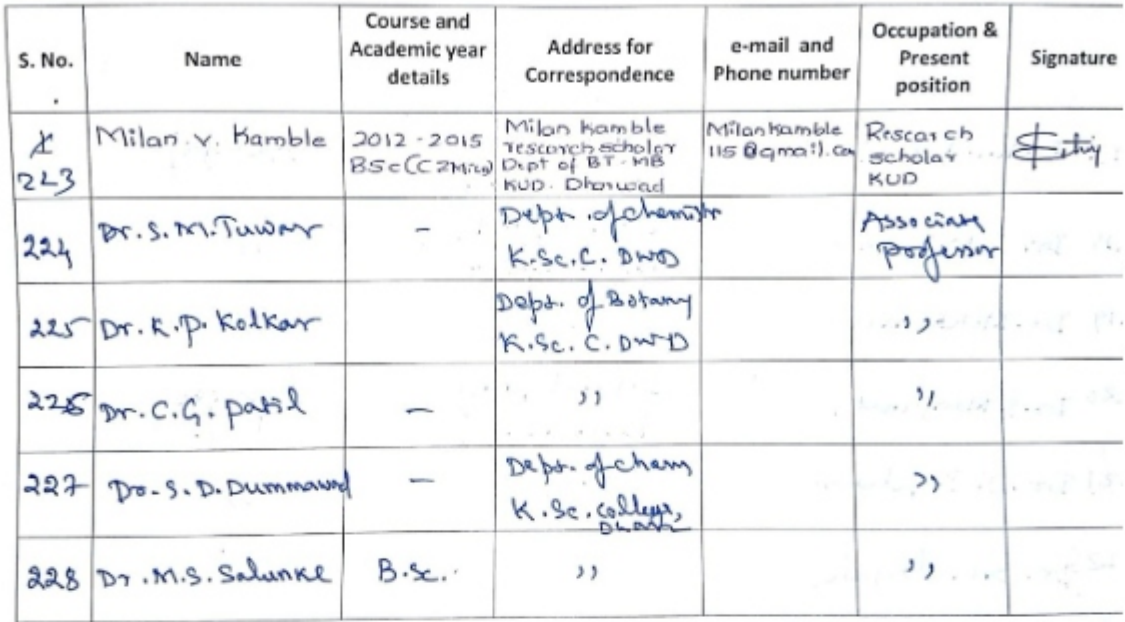 S. No.
Name
Course and
Academic year
details
Address for
Correspondence
e-mail and
Phone number
Occupation &
Present
position
Signature
223
Milan. V. Kamble
2012 - 2015
BSc (CZMicro)
Milan Kamble
research scholar
Dept of BT. MB
KUD. Dharwad
Milankamble
115@gmail.co
Research
scholar
KUD
224
Dr. S. M. Tuwar
-
Dept. of chemistr
K.Sc.C. DWD
Associate
professor
225
Dr. K. P. Kolkar
Dept. of Botany
K.Sc. C. DWD
,,
226
Dr. C. G. patil
-
,,
,,
227
Dr. S. D. Dummawad
-
Dept. of Chem
K. Sc. College,
,,
228
Dr. M.S. Salunke
B.Sc.
,,
,,